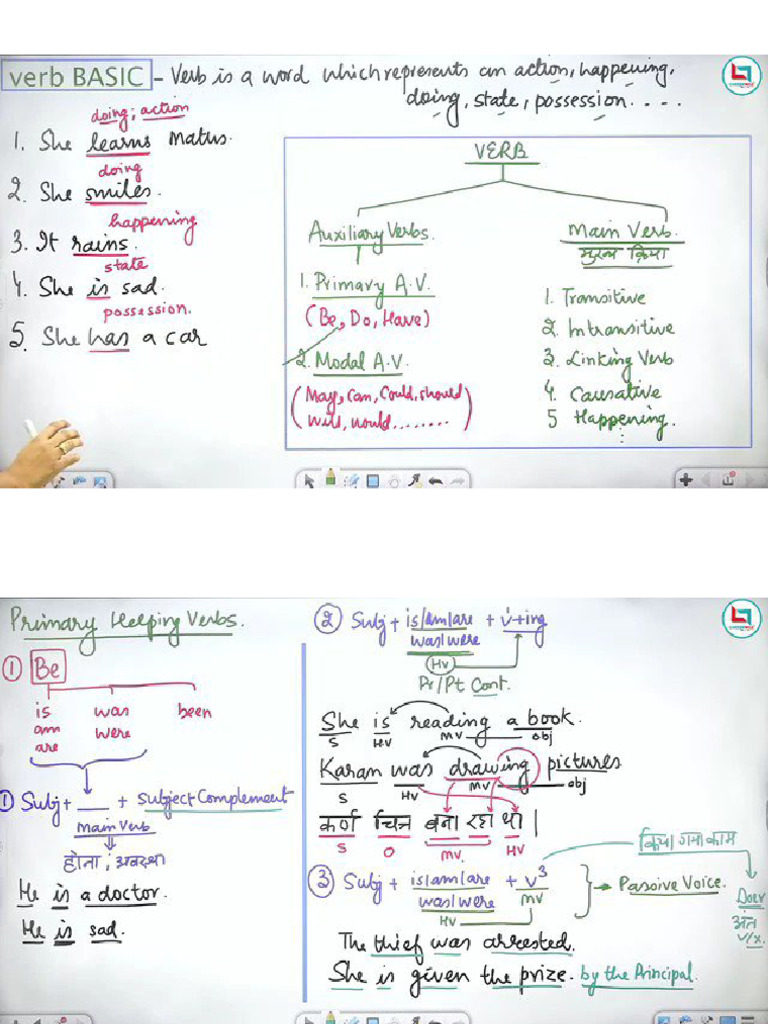 verb BASIC - Verb is a word which represents an action, happening,
doing, state, possession....
doing; action
1. She learns Maths.
doing
2. She smiles.
happening
3. It rains.
state
4. She is sad.
possession.
5. She has a car
VERB
Auxiliary Verbs.
1. Primary A.V.
(Be, Do, Have)
2. Modal A.V.
(May, Can, Could, should
will, would........)
Main Verb.
मुख्य क्रिया
1. Transitive
2. Intransitive
3. Linking Verb
4. Causative
5 Happening.
Primary Helping Verbs.
1 Be
is was been
am were
are
1 Subj + __ + Subject Complement
Main Verb
होना; अवस्था
He is a doctor.
He is sad.
2 Subj + is/am/are + v+ing
was/were
HV
Pr/Pt Cont.
She is reading a book.
S HV MV obj
Karan was drawing pictures
S HV MV obj
कर्ण चित्र बना रहा था|
S O MV. HV
किया गया काम
3 Subj + is/am/are + v3 → Passive Voice.
was/were MV
HV
The thief was arrested.
She is given the prize. by the Principal.